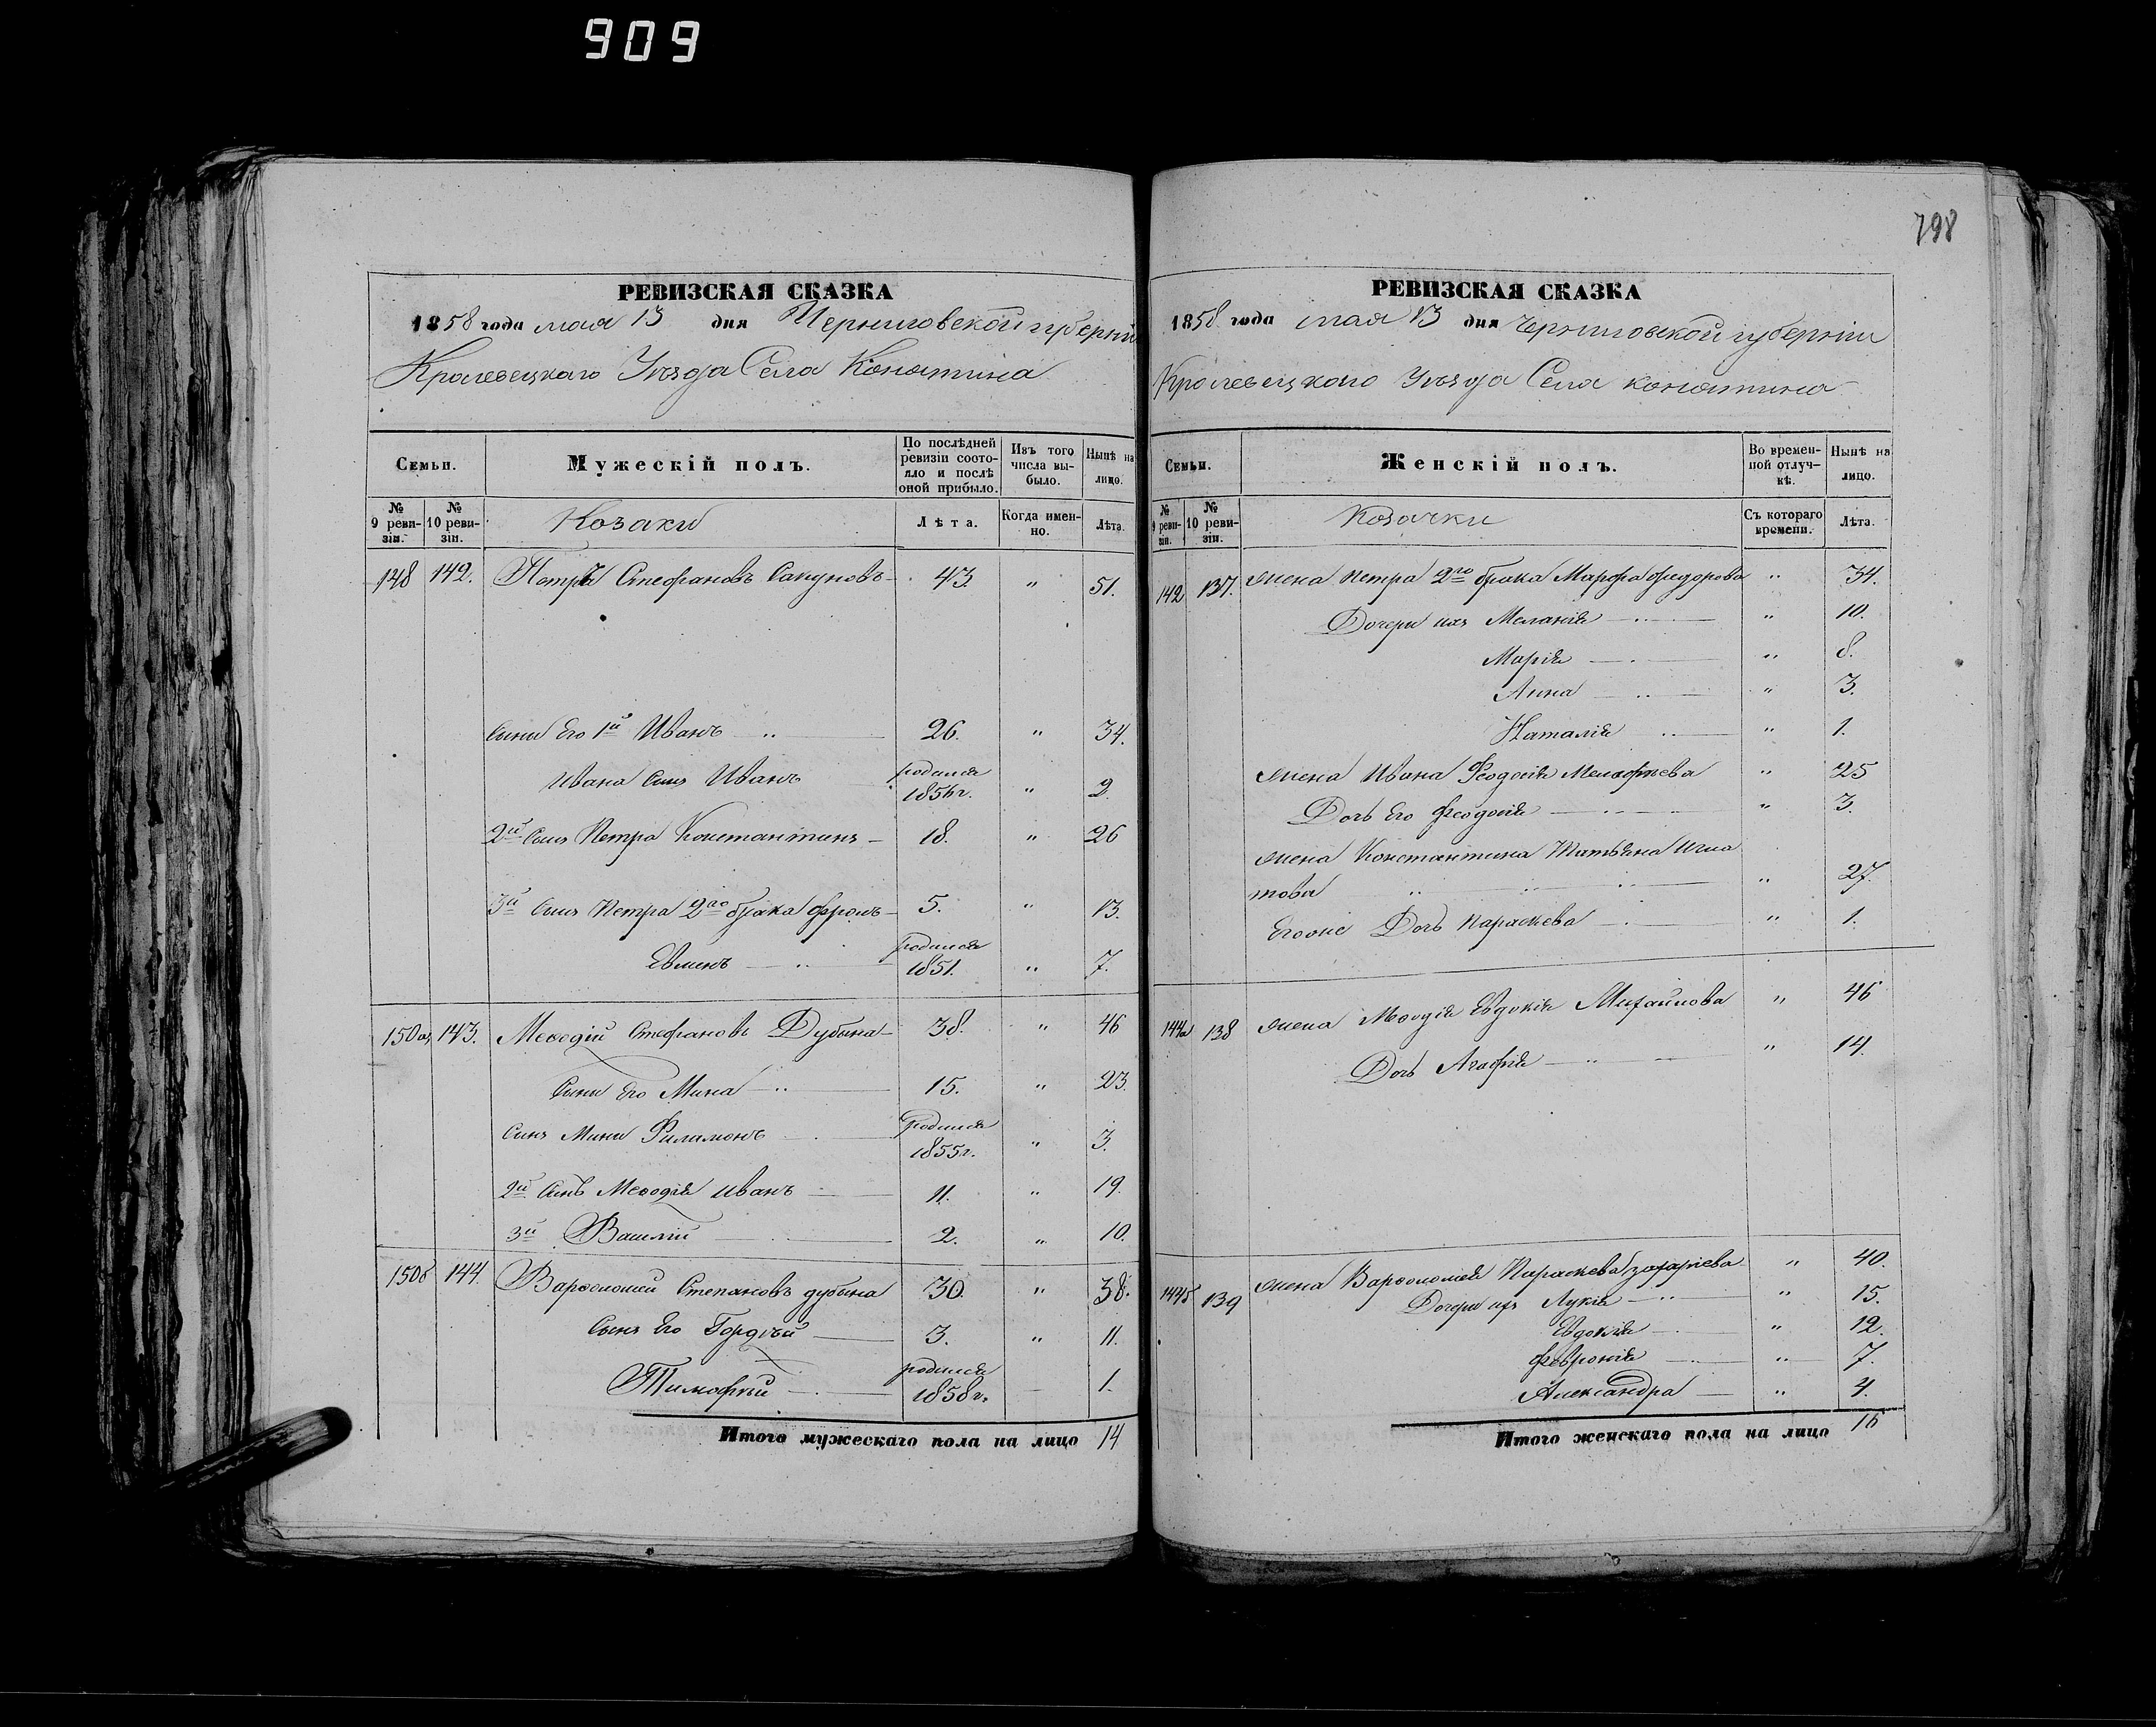 909
798
РЕВИЗСКАЯ СКАЗКА
1858 года мая 13 дня Черниговской губерніи
Кролевецкаго Уѣзда Села Конятина
Семьи.
Мужескій полъ.
По послѣдней ревизіи состояло и послѣ оной прибыло.
Изъ того числа выбыло.
Нынѣ на лицо.
№ 9 ревизіи.
№ 10 ревизіи.
Козаки
Лѣта.
Когда именно.
Лѣта.
148 142. Петръ Стефановъ Сапуновъ 43 " 51.
Сини Его 1й Иванъ 26. " 34.
Ивана Синъ Иванъ родился 1856г. " 2
2й Синъ Петра Константинъ 18. " 26
3й Синъ Петра 2го брака Фролъ 5. " 13.
Евменъ родился 1851. " 7.
150а 143. Меѳодій Стефановъ Дубина 38. " 46
Сини Его Мина 15. " 23.
Синъ Мини Филимонъ родился 1855г. " 3.
2й Синъ Меѳодія Иванъ 11. " 19.
3й Василій 2. " 10.
150б 144. Варѳоломей Степановъ дубина 30. " 38.
Сынъ Его Гордѣй 3. " 11.
Тимофей родился 1858г. 1.
Итого мужескаго пола на лицо 14
РЕВИЗСКАЯ СКАЗКА
1858 года мая 13 дня Черниговской губерніи
Кролевецкаго Уѣзда Села конятина
Семьи.
Женскій полъ.
Во временной отлучкѣ.
Нынѣ на лицо.
№ 9 ревизіи.
№ 10 ревизіи.
Козачки
Съ котораго времени.
Лѣта.
142 137. жена Петра 2го брака Марфа федорова " 34.
Дочери ихъ Меланія " 10.
Марія " 8.
Анна " 3.
Наталія " 1.
жена Ивана Феодосія " 25
Дочь Его Феодосія " 3.
жена Константина Татьяна Игна
това " 27.
Егоже Дочь Параскева " 1.
144а 138 жена Меѳодія Евдокія Михайлова " 46
Дочь Агафія " 14.
144б 139 жена Варѳоломея Параскева захаріева " 40.
Дочери ихъ Лукія " 15.
Евдокія " 12.
Февронія " 7.
Александра " 4.
Итого женскаго пола на лицо 16